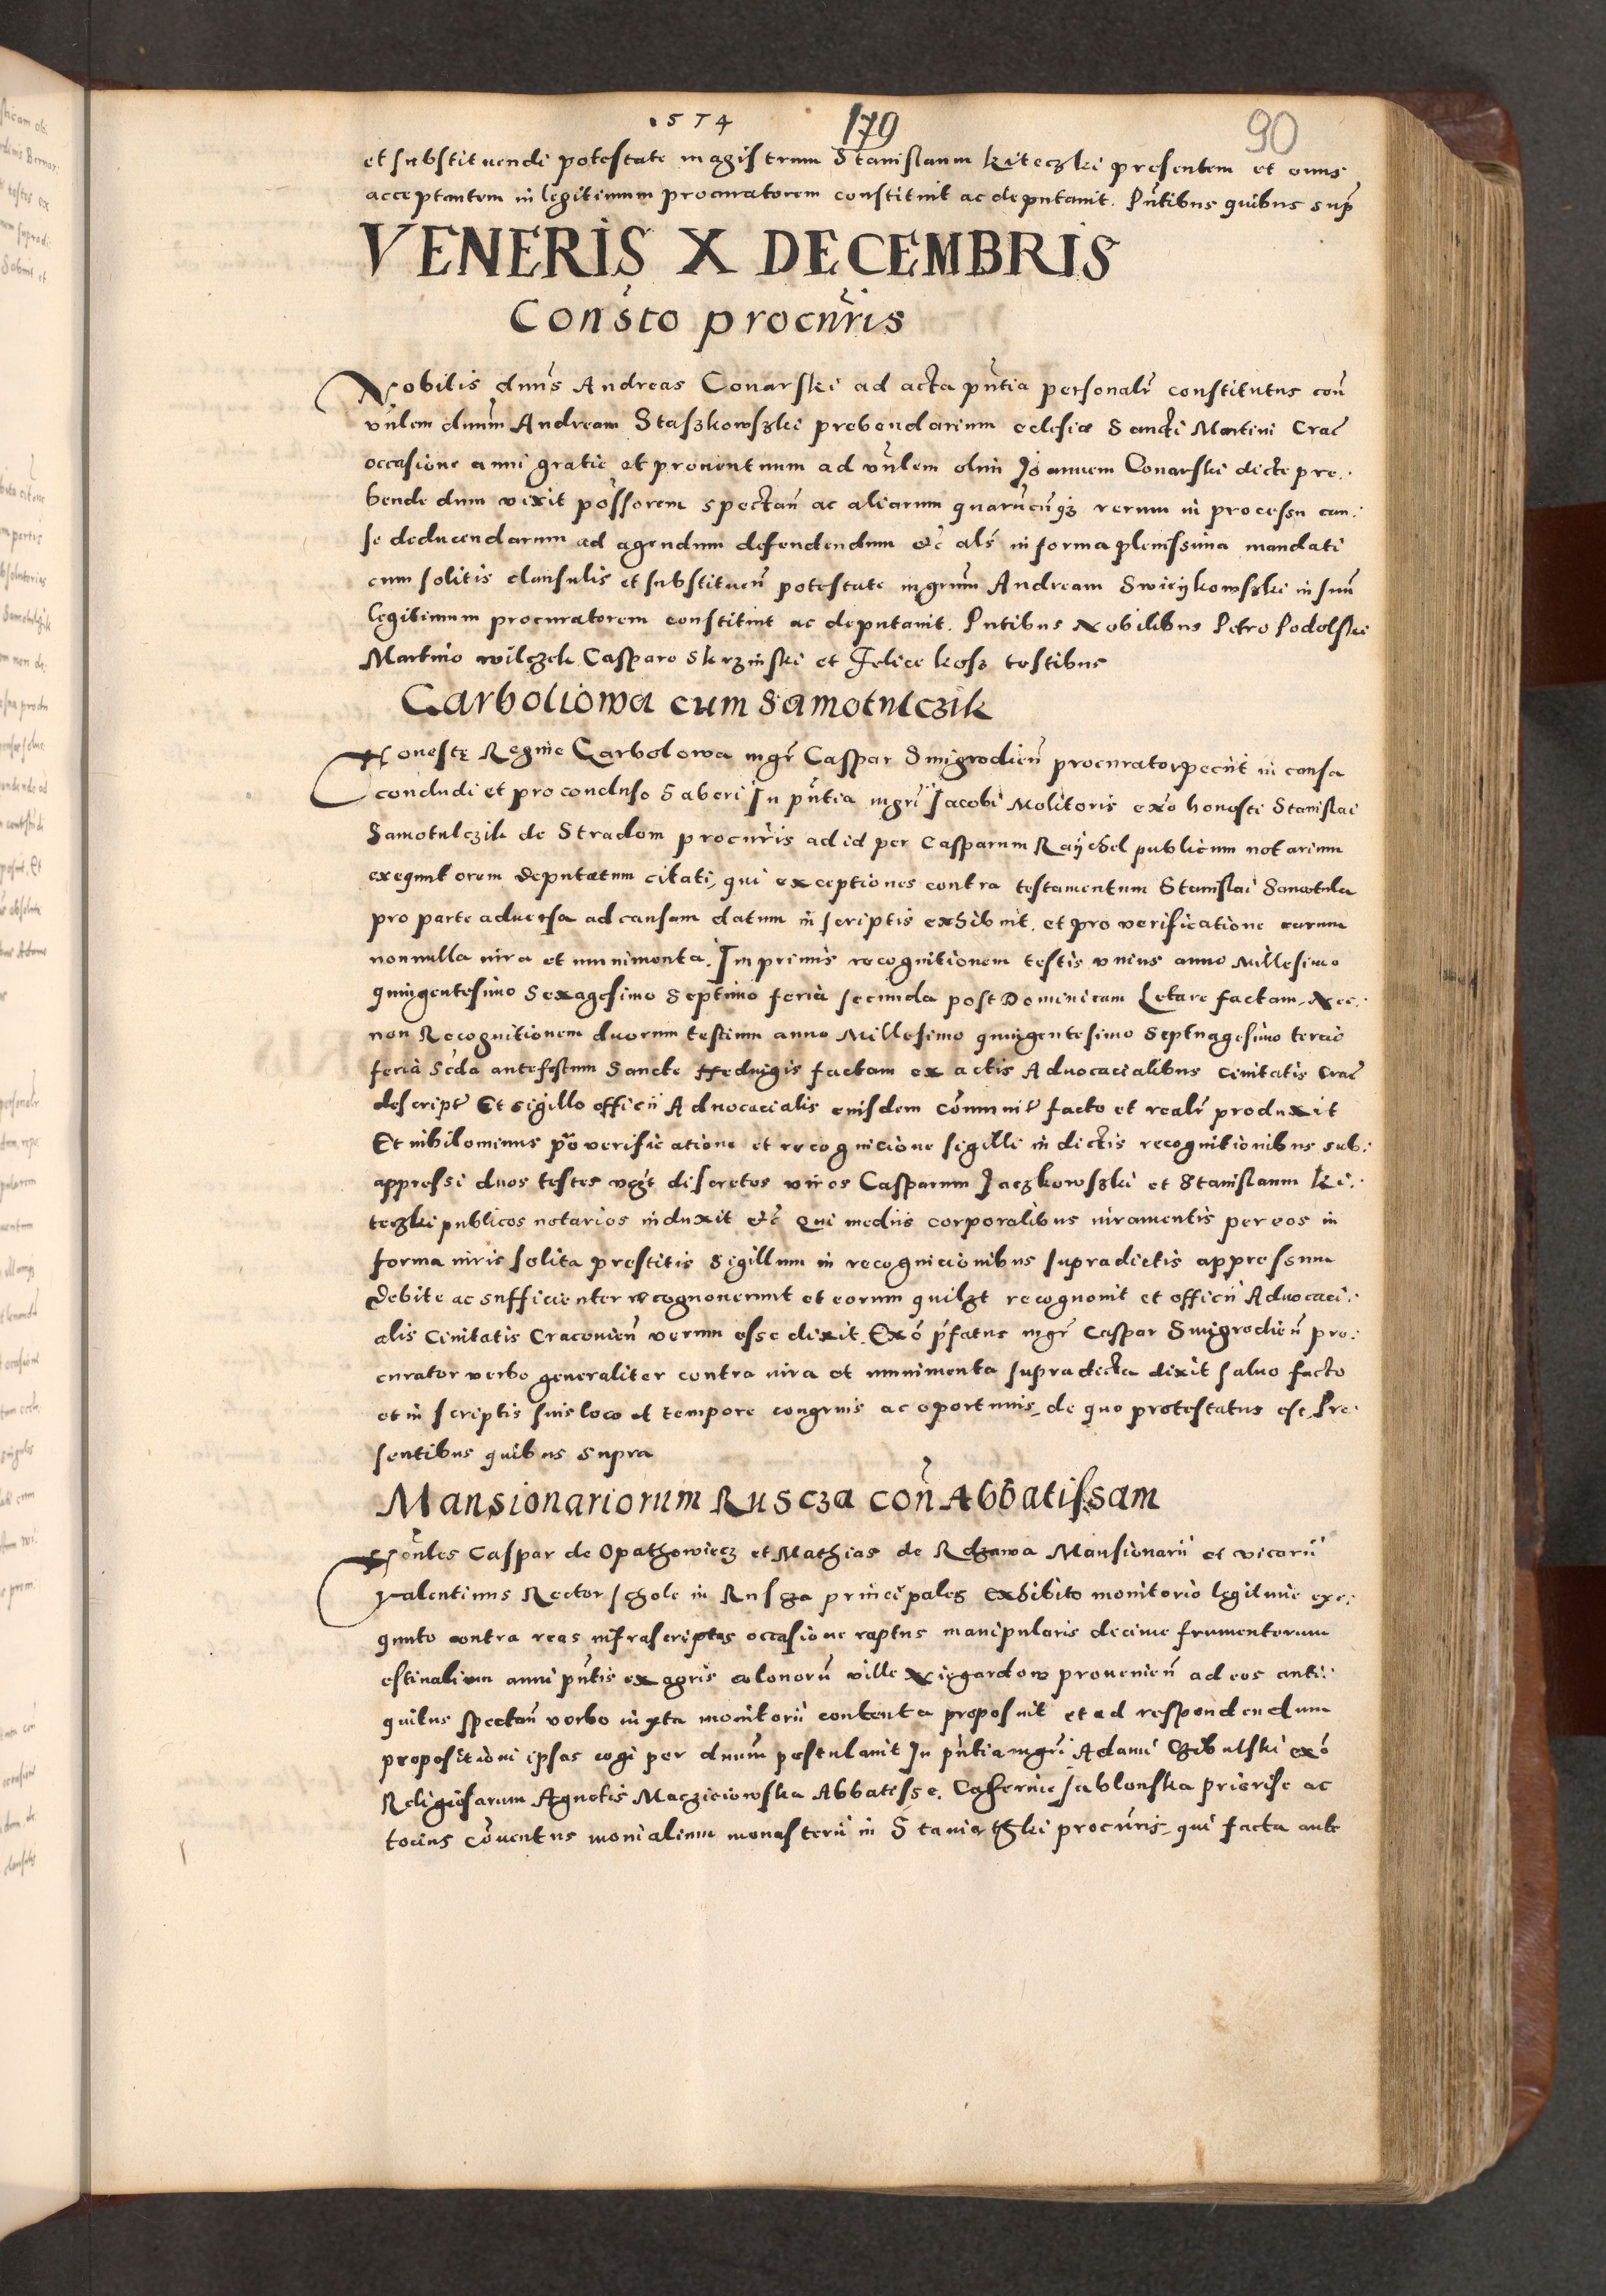 1574 179 90
et substituendi potestate magistrum Stanislaum Kiteczki presentem et onus
acceptantem in legitimum procuratorem constituit ac deputauit. Pñtibus quibus sup̃
VENERIS X DECEMBRIS
Consto procuris
Nobilis dnus Andreas Conarski ad acta pñtia personalr constitutus con
vnlem dnum Andream Staszkowszki prebendarium eclesiæ Sancti Martini Crac
occasione anni gratie et prouentuum ad vnlem olim Joannem Conarski dicte pre:
bende dum vixit possorem spectan ac aliarum quarucuqz rerum in processu cau:
se deducendarum ad agendum defendendum etc als in forma plenissima mandati
cum solitis clausulis et substituen potestate mgrum Andream Swieykowszki in suu
legitimum procuratorem constituit ac deputauit. Pntibus Nobilibus Petro Podolski
Martino wilczek Casparo Skrzinski et Felice kosz testibus
Carboliowa cum Samotulczik
Honestę Regine Carbolowa mgr Caspar Smigrodien procurator petit in causa
concludi et pro concluso haberi In pñtia mgri Jacobi Molitoris exo honesti Stanislai
Samotulczik de Stradom procuris ad id per Casparum Raychel publicum notarium
exequutorem deputatum citati, qui exceptiones contra testamentum Stanislai Samotula
pro parte aduersa ad causam datum in scriptis exhibuit, et pro verificatione earum
nonnulla iura et munimenta. Imprimis recognitionem testis vnius anno Millesimo
quingentesimo Sexagesimo Septimo feria secunda post Dominicam Letare factam, Nec:
non Recognitionem duorum testium anno Millesimo quingentesimo Septuagesimo tercio
feria Scda ante festum Sancte Heduigis factam ex actis Aduocacialibus Ciuitatis Crac
descript Et sigillo officii Aduocacialis eiusdem comunit facto et realr produxit
Et nihilominus pro verificatione et recognicione sigilli in dictis recognitionibus sub:
appressi duos testes vgit discretos viros Casparum Jaczkowszki et Stanislaum Ki:
teczki publicos notarios induxit etc Qui mediis corporalibus iuramentis per eos in
forma iuris solita prestitis Sigillum in recognicionibus supradictis appressum
Debite ac sufficienter recognouerunt et eorum quilzt recognouit et officii Aduocaci:
alis Ciuitatis Cracouien verum esse dixit. Exo pfatus mgr Caspar Smigrodien pro:
curator verbo generaliter contra iura et munimenta supradicta dixit saluo facto
et in scriptis suis loco et tempore congruis ac oportunis, de quo protestatus est, Pre:
sentibus quibus supra
Mansionariorum Ruscza con Abbatissam
Honles Caspar de Opathowiecz et Mathias de Rdzawa Mansionarii et vicarii
Valentinus Rector schole in Ruscza principales Exhibito monitorio legitime exe:
quuto contra reas infrascriptas occasione raptus manipularis decime frumentorum
estiualium anni pñtis ex agris colonoru ville Więgardow prouenien ad eos anti:
quitus spectan verbo iuxta monitorii contenta proposuit et ad respondendum
propositioni ipsas cogi per dnum postulauit In pñtia mgri Adami Czibulski exo
Religiosarum Agnetis Maczieiowska Abbatisse, Caterine Jablonska priorise ac
tocius Couentus monialium monasterii in Staniątzki procuris, qui facta ante